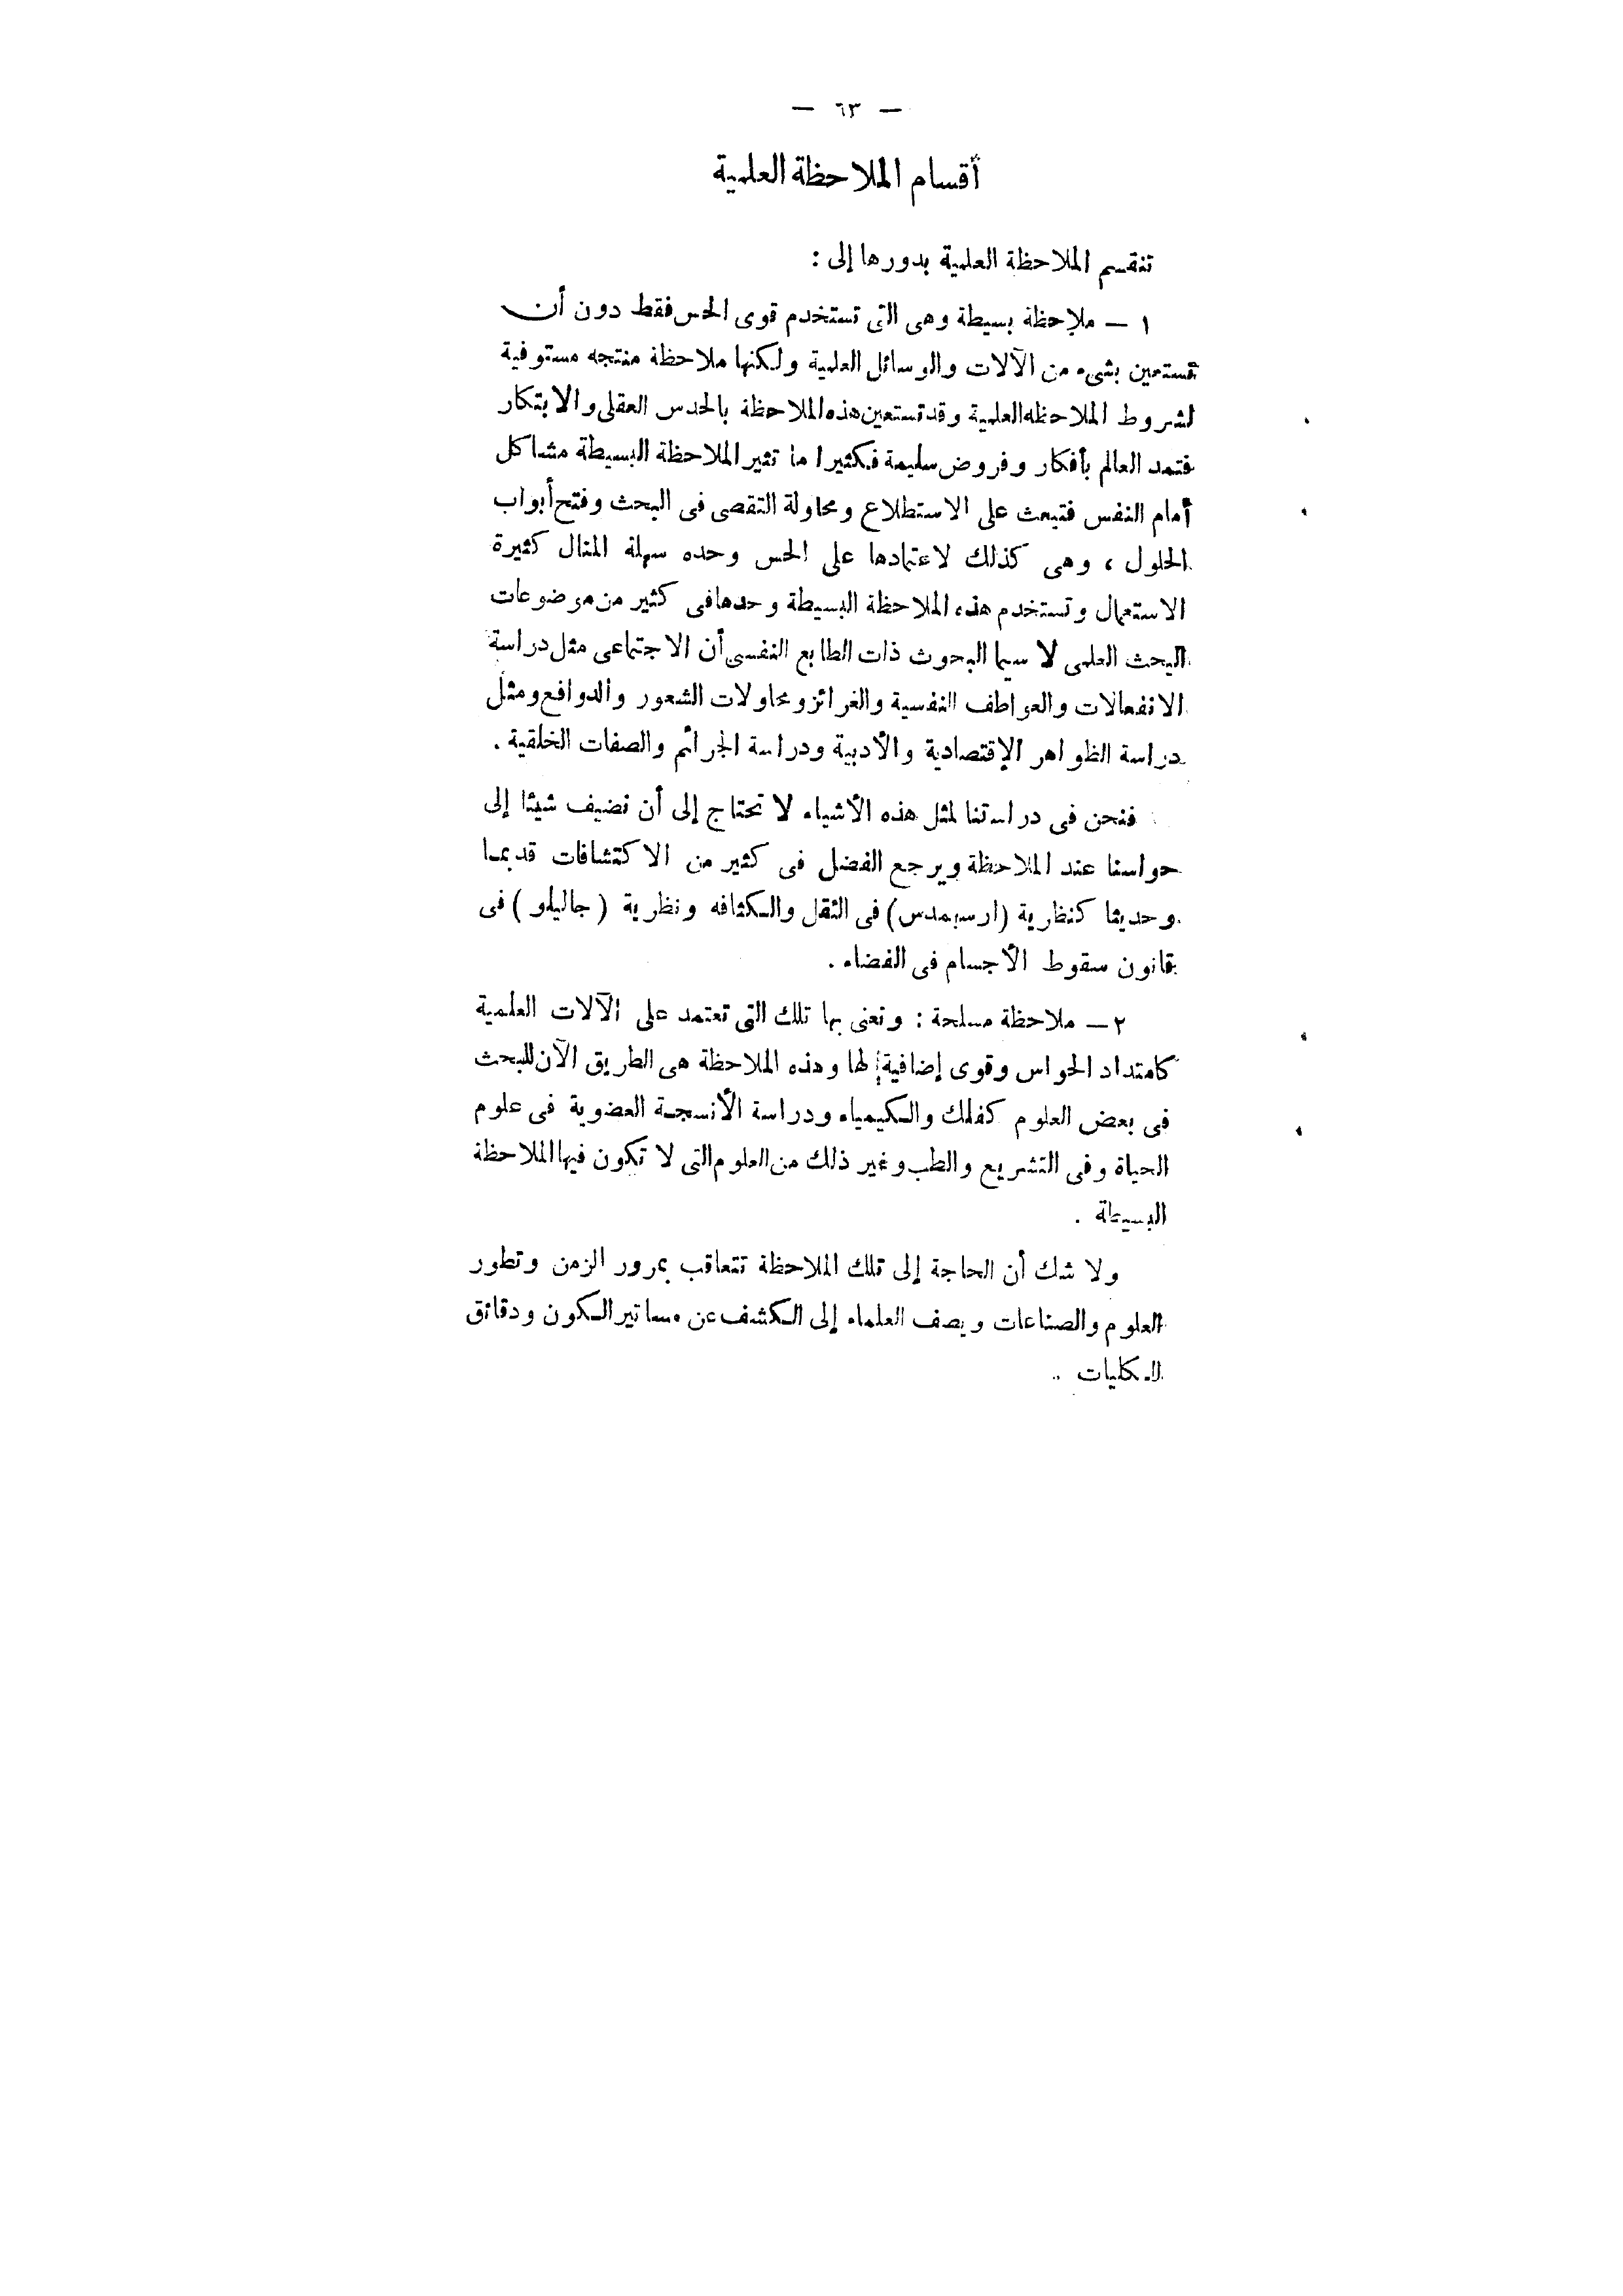 — ٦٣ —
أقسام الملاحظة العلمية
تنقسم الملاحظة العلمية بدورها إلى :
١ — ملاحظة بسيطة وهى التى تستخدم قوى الحس فقط دون أن
تستعين بشىء من الآلات والوسائل العلمية ولكنها ملاحظة منتجه مستوفية
لشروط الملاحظه العلمية وقد تستعين هذه الملاحظة بالحدس العقلى والابتكار
فتمد العالم بأفكار وفروض سليمة فكثيرا ما تثير الملاحظة البسيطة مشاكل
أمام النفس فتبعث على الاستطلاع ومحاولة التقصى فى البحث وفتح أبواب
الحلول ، وهى كذلك لاعتمادها على الحس وحده سهلة المنال كثيرة
الاستعمال وتستخدم هذه الملاحظة البسيطة وحدها فى كثير من موضوعات
البحث العلمى لا سيما البحوث ذات الطابع النفسى أن الاجتماعى مثل دراسة
الانفعالات والعواطف النفسية والغرائز ومحاولات الشعور والدوافع ومثل
دراسة الظواهر الإقتصادية والأدبية ودراسة الجرائم والصفات الخلقية .
فنحن فى دراستنا لمثل هذه الأشياء لا نحتاج إلى أن نضيف شيئا إلى
حواسنا عند الملاحظة ويرجع الفضل فى كثير من الاكتشافات قديما
وحديثا كنظارية (ارسيمدس) فى الثقل والكثافه ونظرية (جاليلو) فى
قانون سقوط الأجسام فى الفضاء .
٢ — ملاحظة مسلحة : ونعنى بها تلك التى تعتمد على الآلات العلمية
كامتداد الحواس وقوى إضافية لها وهذه الملاحظة هى الطريق الآن للبحث
فى بعض العلوم كفلك والكيمياء ودراسة الأنسجة العضوية فى علوم
الحياة وفى التشريع والطب وغير ذلك من العلوم التى لا تكون فيها الملاحظة
البسيطة .
ولا شك أن الحاجة إلى تلك الملاحظة تتعاقب بمرور الزمن وتطور
العلوم والصناعات ويصف العلماء إلى الكشف عن مساتير الكون ودقائق
الكليات ..